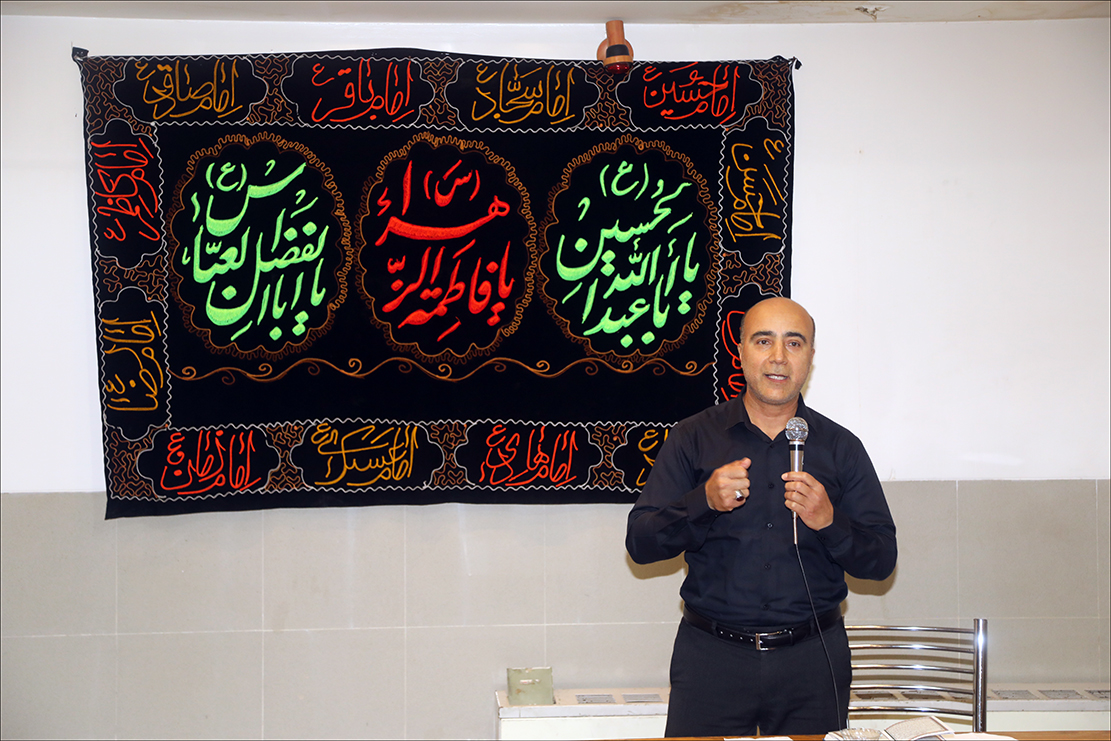 امام حسین ع
امام سجاد ع
امام باقر ع
امام صادق ع
امام حسن ع
یا أبا عبدالله الحسین (ع)
یا فاطمة الزهراء (س)
یا اباالفضل العباس (ع)
امام کاظم ع
امام رضا ع
امام هادی ع
امام عسکری ع
امام زمان ع